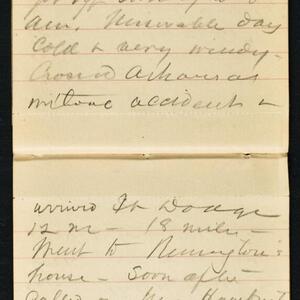 am. Miserable day
cold & very windy-
Crossed Arkansas
without accident &
arrived Ft Dodge
12 m - 18 miles -
Went to Remington's
house - Soon after
called on